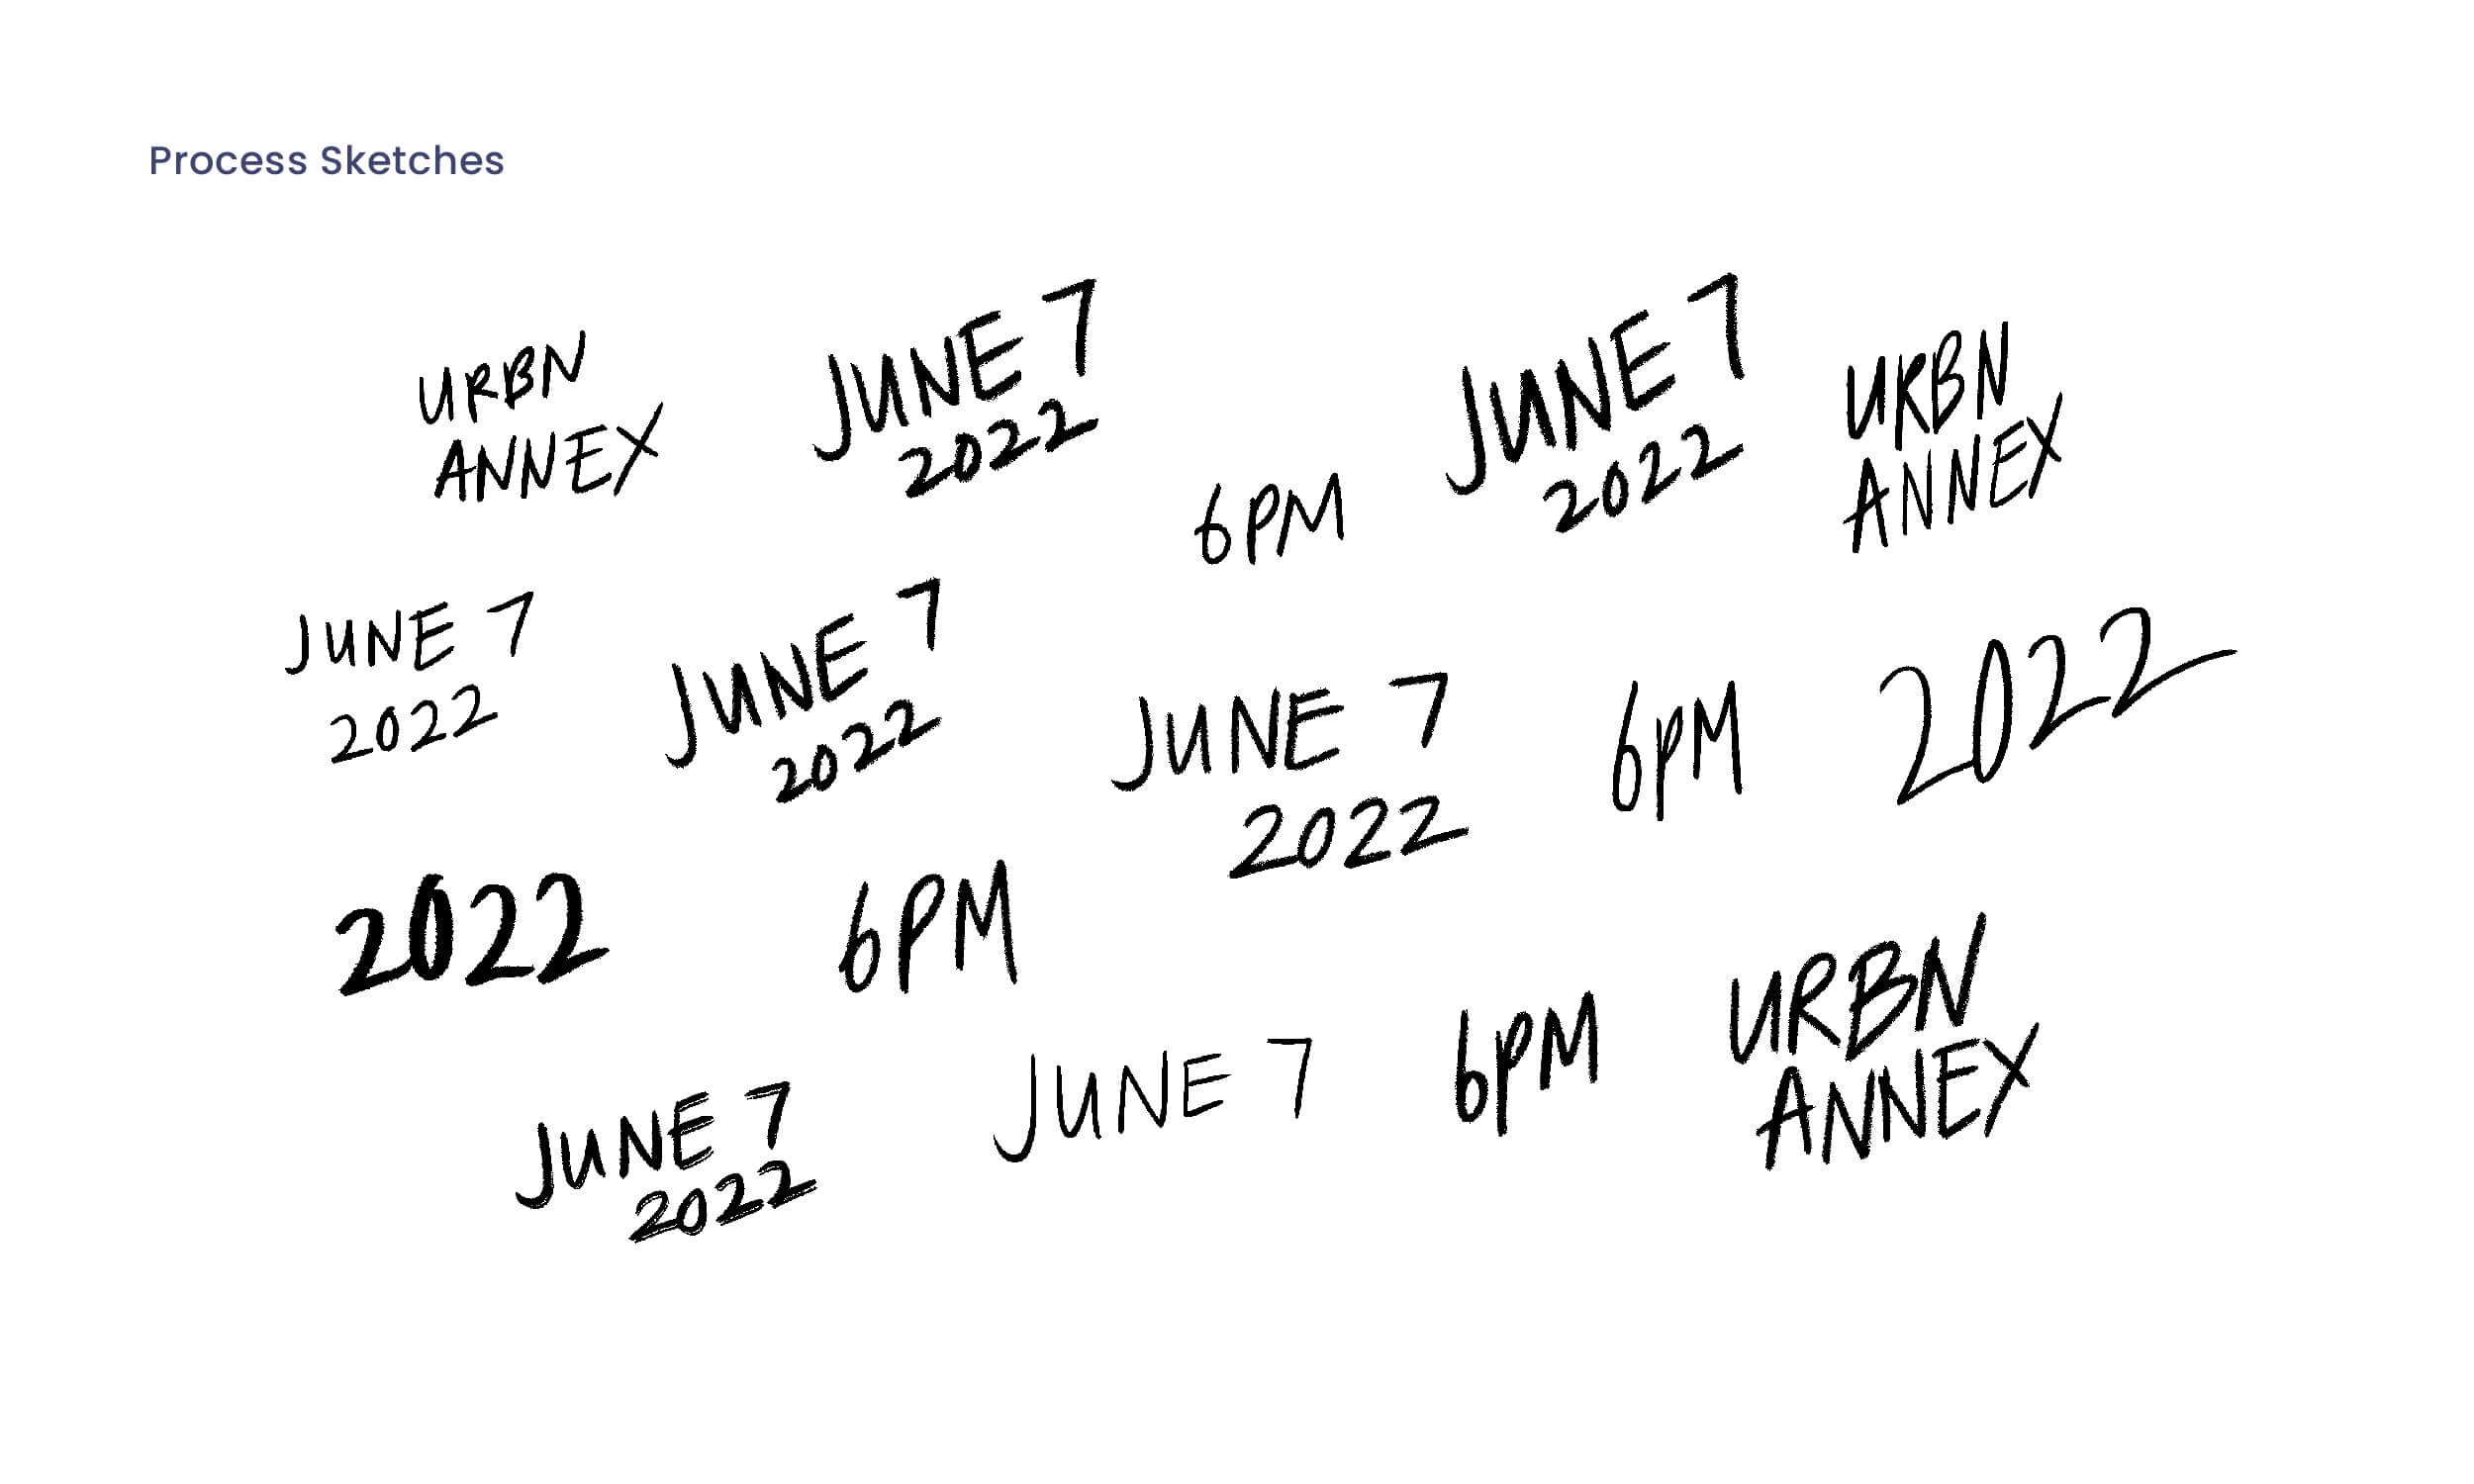 Process Sketches
URBN
ANNEX
JUNE 7
2022
6PM
JUNE 7
2022
URBN
ANNEX
JUNE 7
2022
JUNE 7
2022
JUNE 7
2022
6PM
2022
2022
6PM
JUNE 7
2022
JUNE 7
6PM
URBN
ANNEX